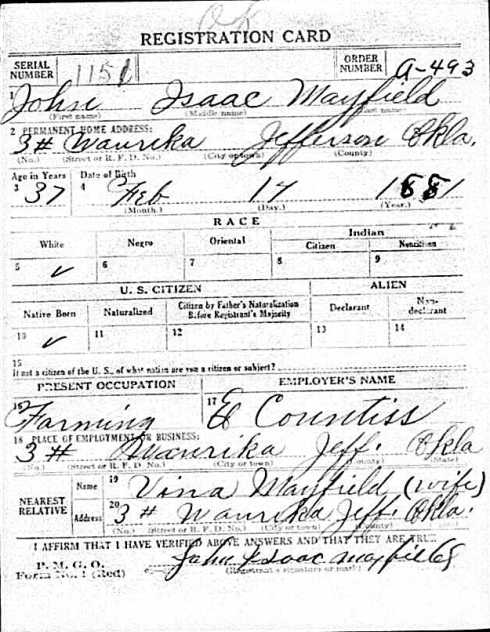 REGISTRATION CARD
SERIAL NUMBER 1151 ORDER NUMBER A-493
1 John Isaac Mayfield
(First name) (Middle name)
2 PERMANENT HOME ADDRESS:
3# Waurika Jefferson Okla.
(No.) (Street or R. F. D. No.) (City or town) (County)
Age in Years Date of Birth
3 37 4 Feb 17 1881
(Month.) (Day.) (Year.)
RACE
White Negro Oriental Indian
Citizen Noncitizen
5 ✓ 6 7 8 9
U. S. CITIZEN ALIEN
Native Born Naturalized Citizen by Father's Naturalization Before Registrant's Majority Declarant Non-declarant
10 ✓ 11 12 13 14
15
If not a citizen of the U. S., of what nation are you a citizen or subject?
PRESENT OCCUPATION EMPLOYER'S NAME
16 Farming 17 Countiss
18 PLACE OF EMPLOYMENT OR BUSINESS:
3# Waurika Jeff. Okla
(No.) (Street or R. F. D. No.) (City or town) (County) (State)
NEAREST RELATIVE
Name 19 Vina Mayfield (wife)
Address 20 3# Waurika Jeff. Okla.
(No.) (Street or R. F. D. No.) (City or town) (County)
I AFFIRM THAT I HAVE VERIFIED ABOVE ANSWERS AND THAT THEY ARE TRUE
P. M. G. O.
Form No. 1 (Red) John Isaac Mayfield
(Registrant's signature or mark)